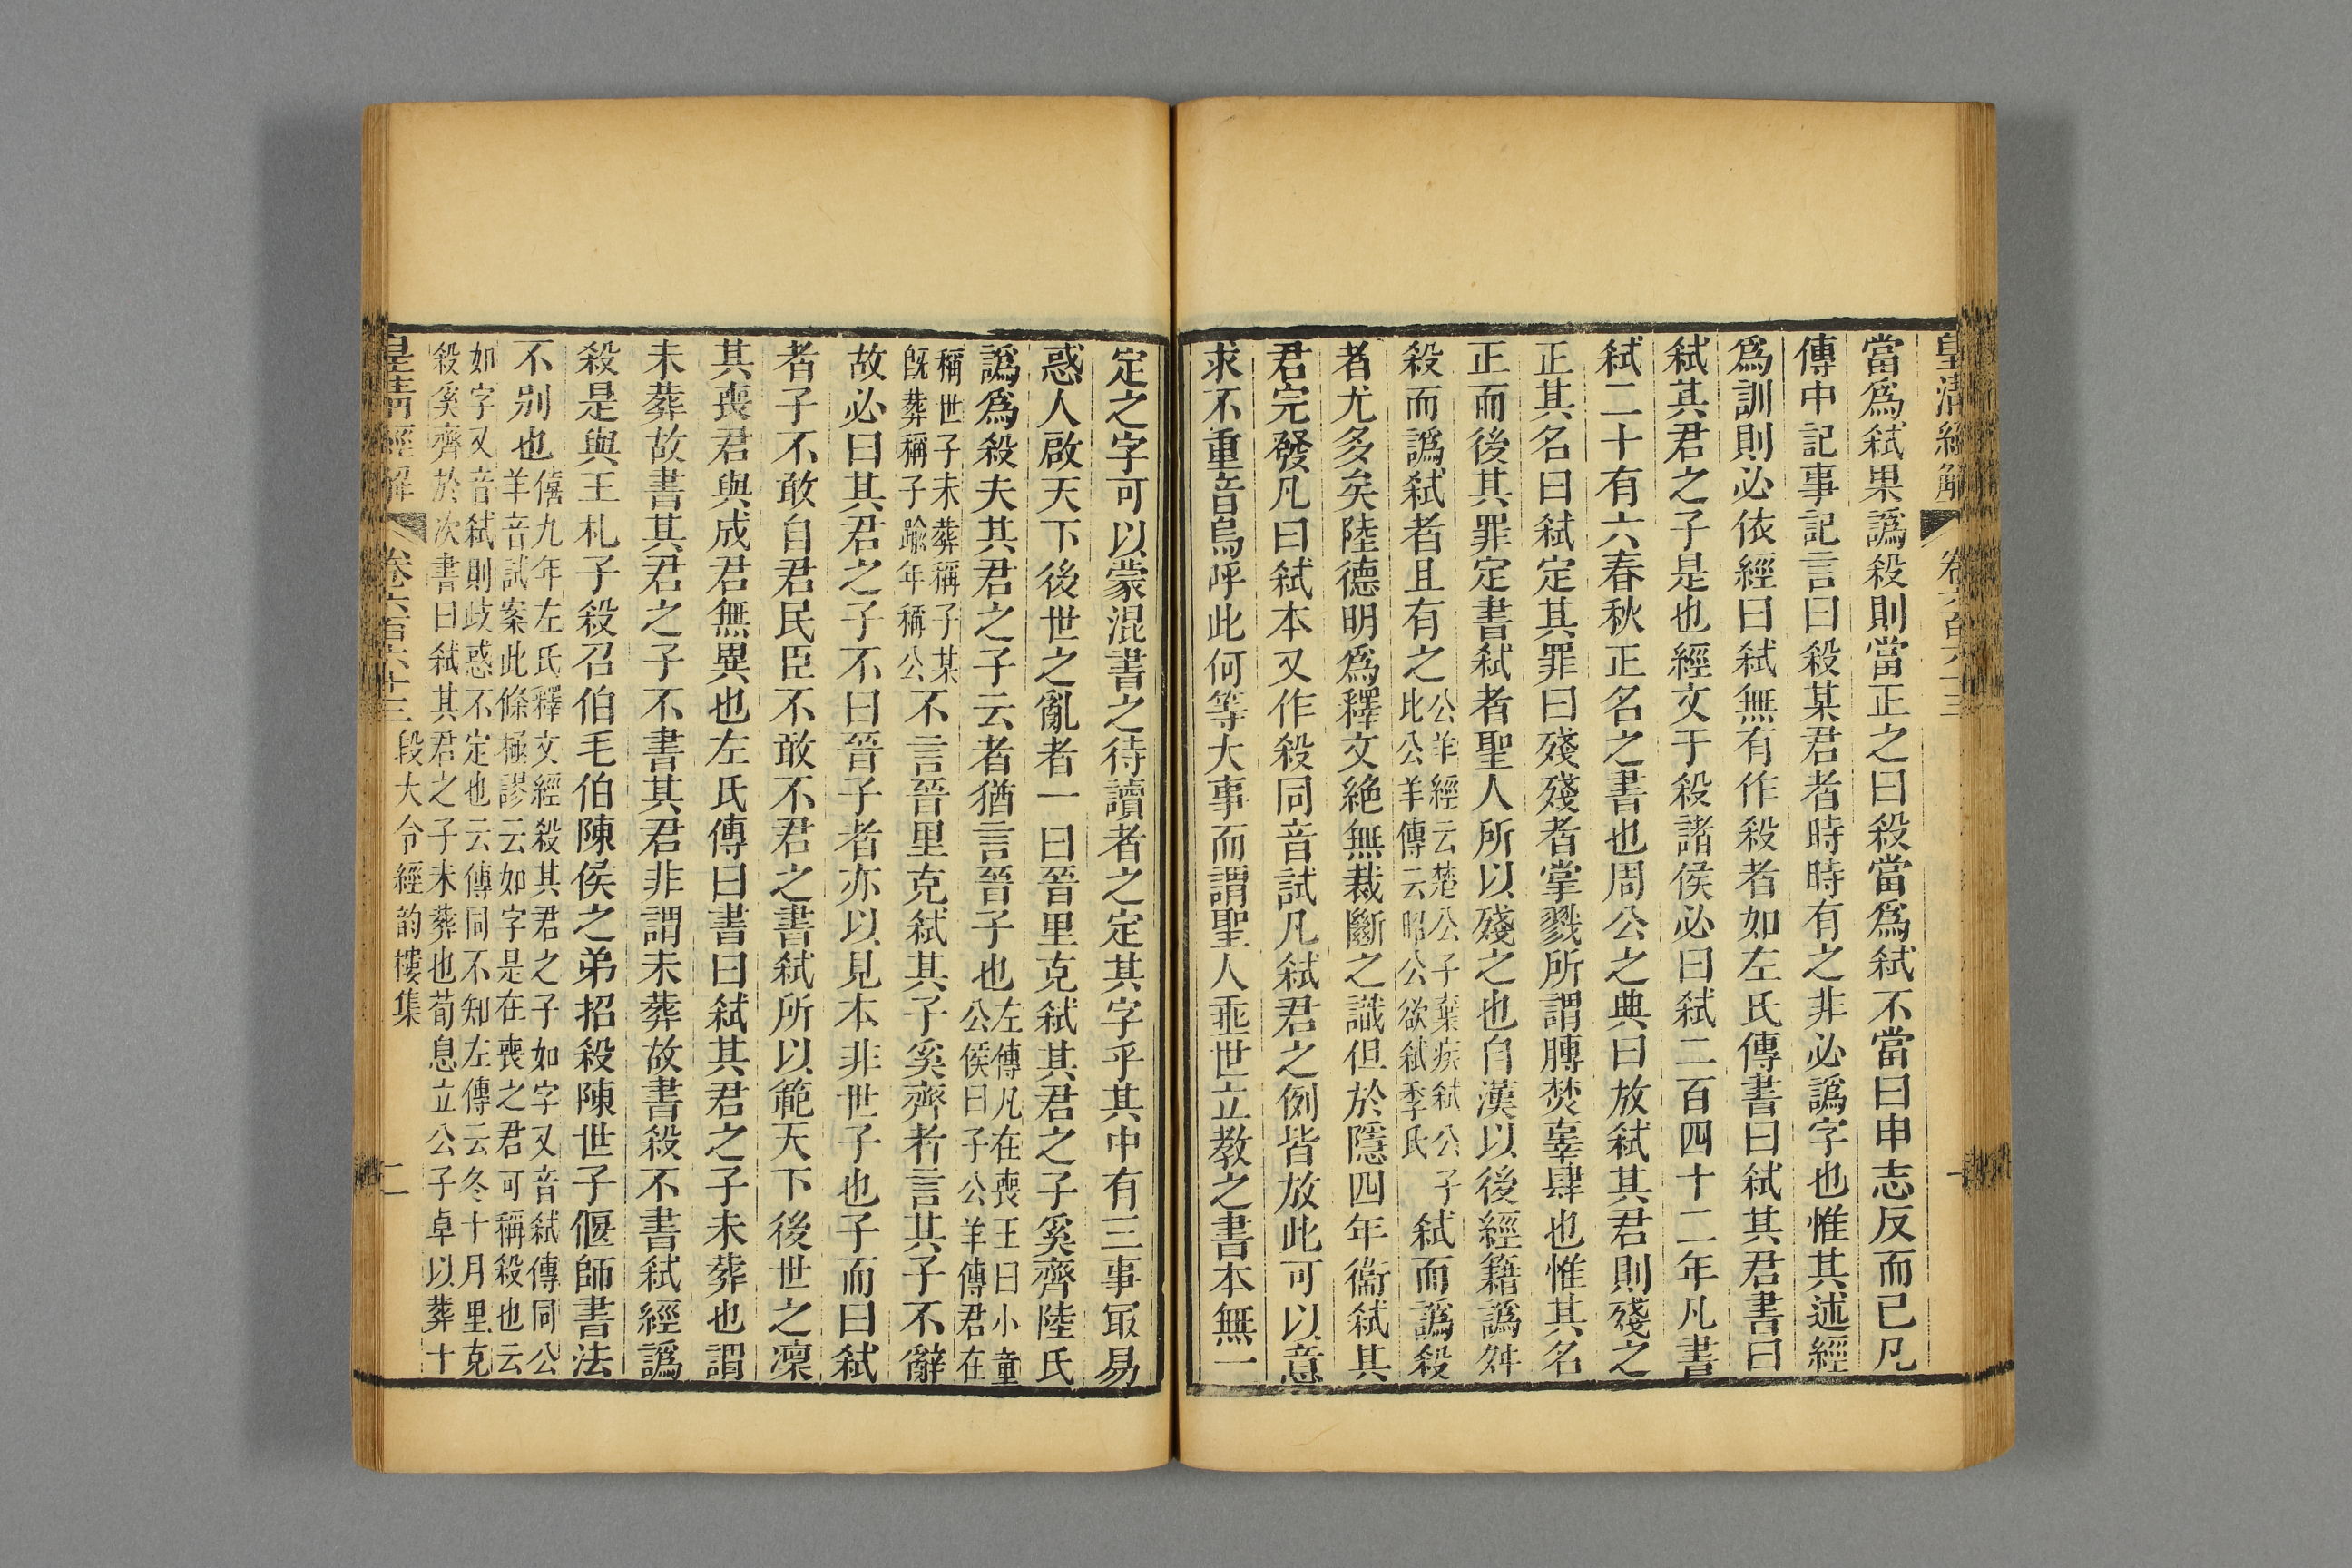 皇清經解 卷六百六十三 一
當爲弑果譌殺則當正之曰殺當爲弑不當曰申志反而已凡
傳中記事記言曰殺某君者時時有之非必譌字也惟其述經
爲訓則必依經曰弑無有作殺者如左氏傳書曰弑其君書曰
弑其君之子是也經文于殺諸侯必曰弑二百四十二年凡書
弑二十有六春秋正名之書也周公之典曰放弑其君則殘之
正其名曰弑定其罪曰殘殘者掌戮所謂膊焚辜肆也惟其名
正而後其罪定書弑者聖人所以殘之也自漢以後經籍譌舛
殺而譌弑者且有之公羊經云楚公子棄疾弑公子比公羊傳云昭公欲弑季氏弑而譌殺
者尤多矣陸德明爲釋文絶無裁斷之識但於隱四年衞弑其
君完發凡曰弑本又作殺同音試凡弑君之例皆放此可以意
求不重音烏呼此何等大事而謂聖人垂世立教之書本無一
定之字可以蒙混書之待讀者之定其字乎其中有三事冣易
惑人啟天下後世之亂者一曰晉里克弑其君之子奚齊陸氏
譌爲殺夫其君之子云者猶言晉子也左傳凡在喪王曰小童公侯曰子公羊傳君在
稱世子未葬稱子某旣葬稱子踰年稱公不言晉里克弑其子奚齊者言其子不辭
故必曰其君之子不曰晉子者亦以見本非世子也子而曰弑
者子不敢自君民臣不敢不君之書弑所以範天下後世之凛
其喪君與成君無異也左氏傳曰書曰弑其君之子未葬也謂
未葬故書其君之子不書其君非謂未葬故書殺不書弑經譌
殺是與王札子殺召伯毛伯陳侯之弟招殺陳世子偃師書法
不别也僖九年左氏釋文經殺其君之子如字又音弑傳同公羊音試案此條極謬云如字是在喪之君可稱殺也云
如字又音弑則歧惑不定也云傳同不知左傳云冬十月里克殺奚齊於次書曰弑其君之子未葬也荀息立公子卓以葬十
皇清經解 卷六百六十三 段大令經韵樓集 二